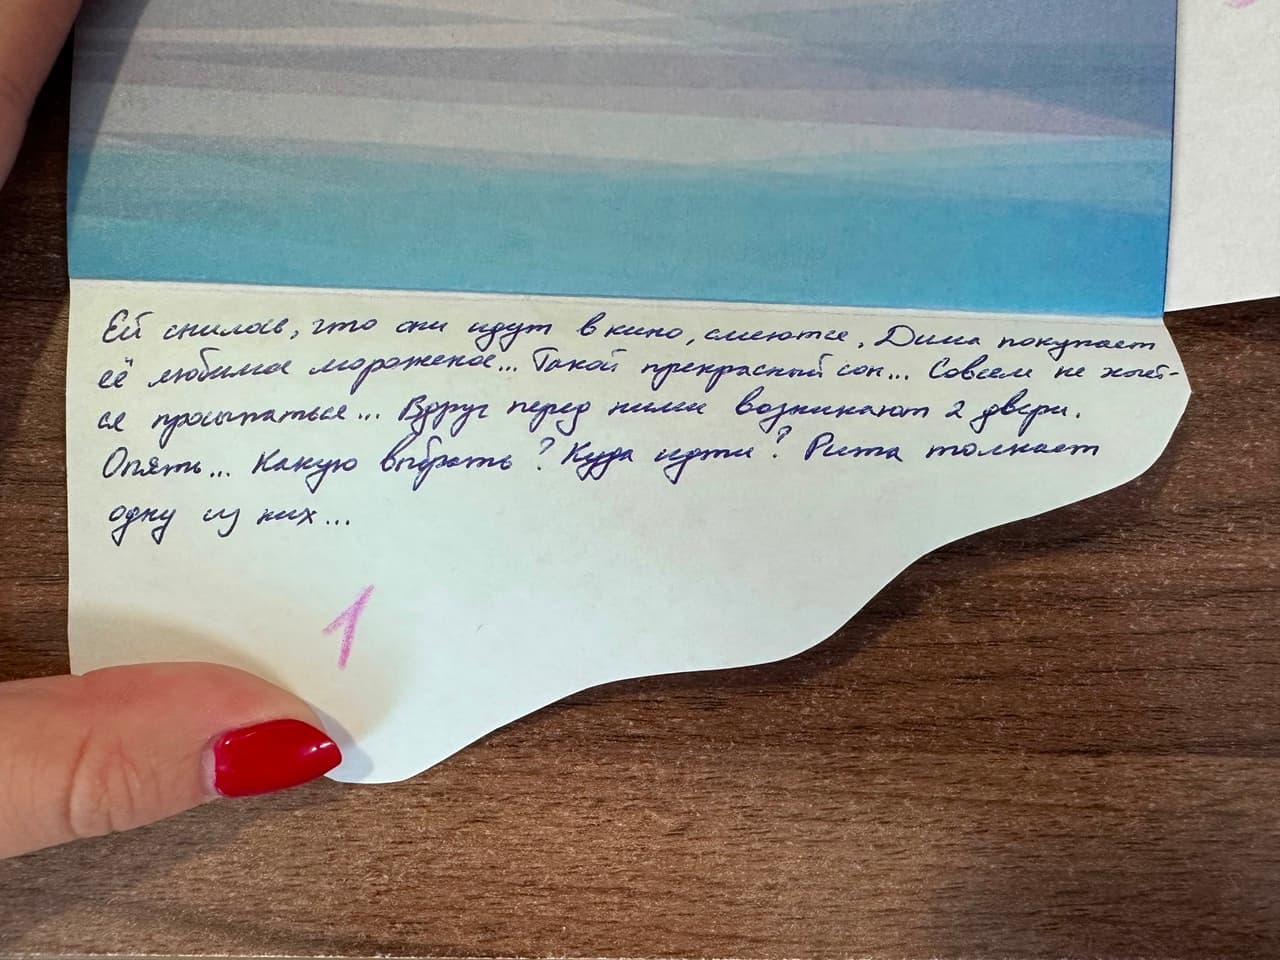 Ей снилось, что они идут в кино, смеются, Дима покупает
её любимое мороженое... Такой прекрасный сон... Совсем не хочет-
ся просыпаться... Вдруг перед ними возникают 2 двери.
Опять... Какую выбрать? Куда идти? Рита толкает
одну из них...
1